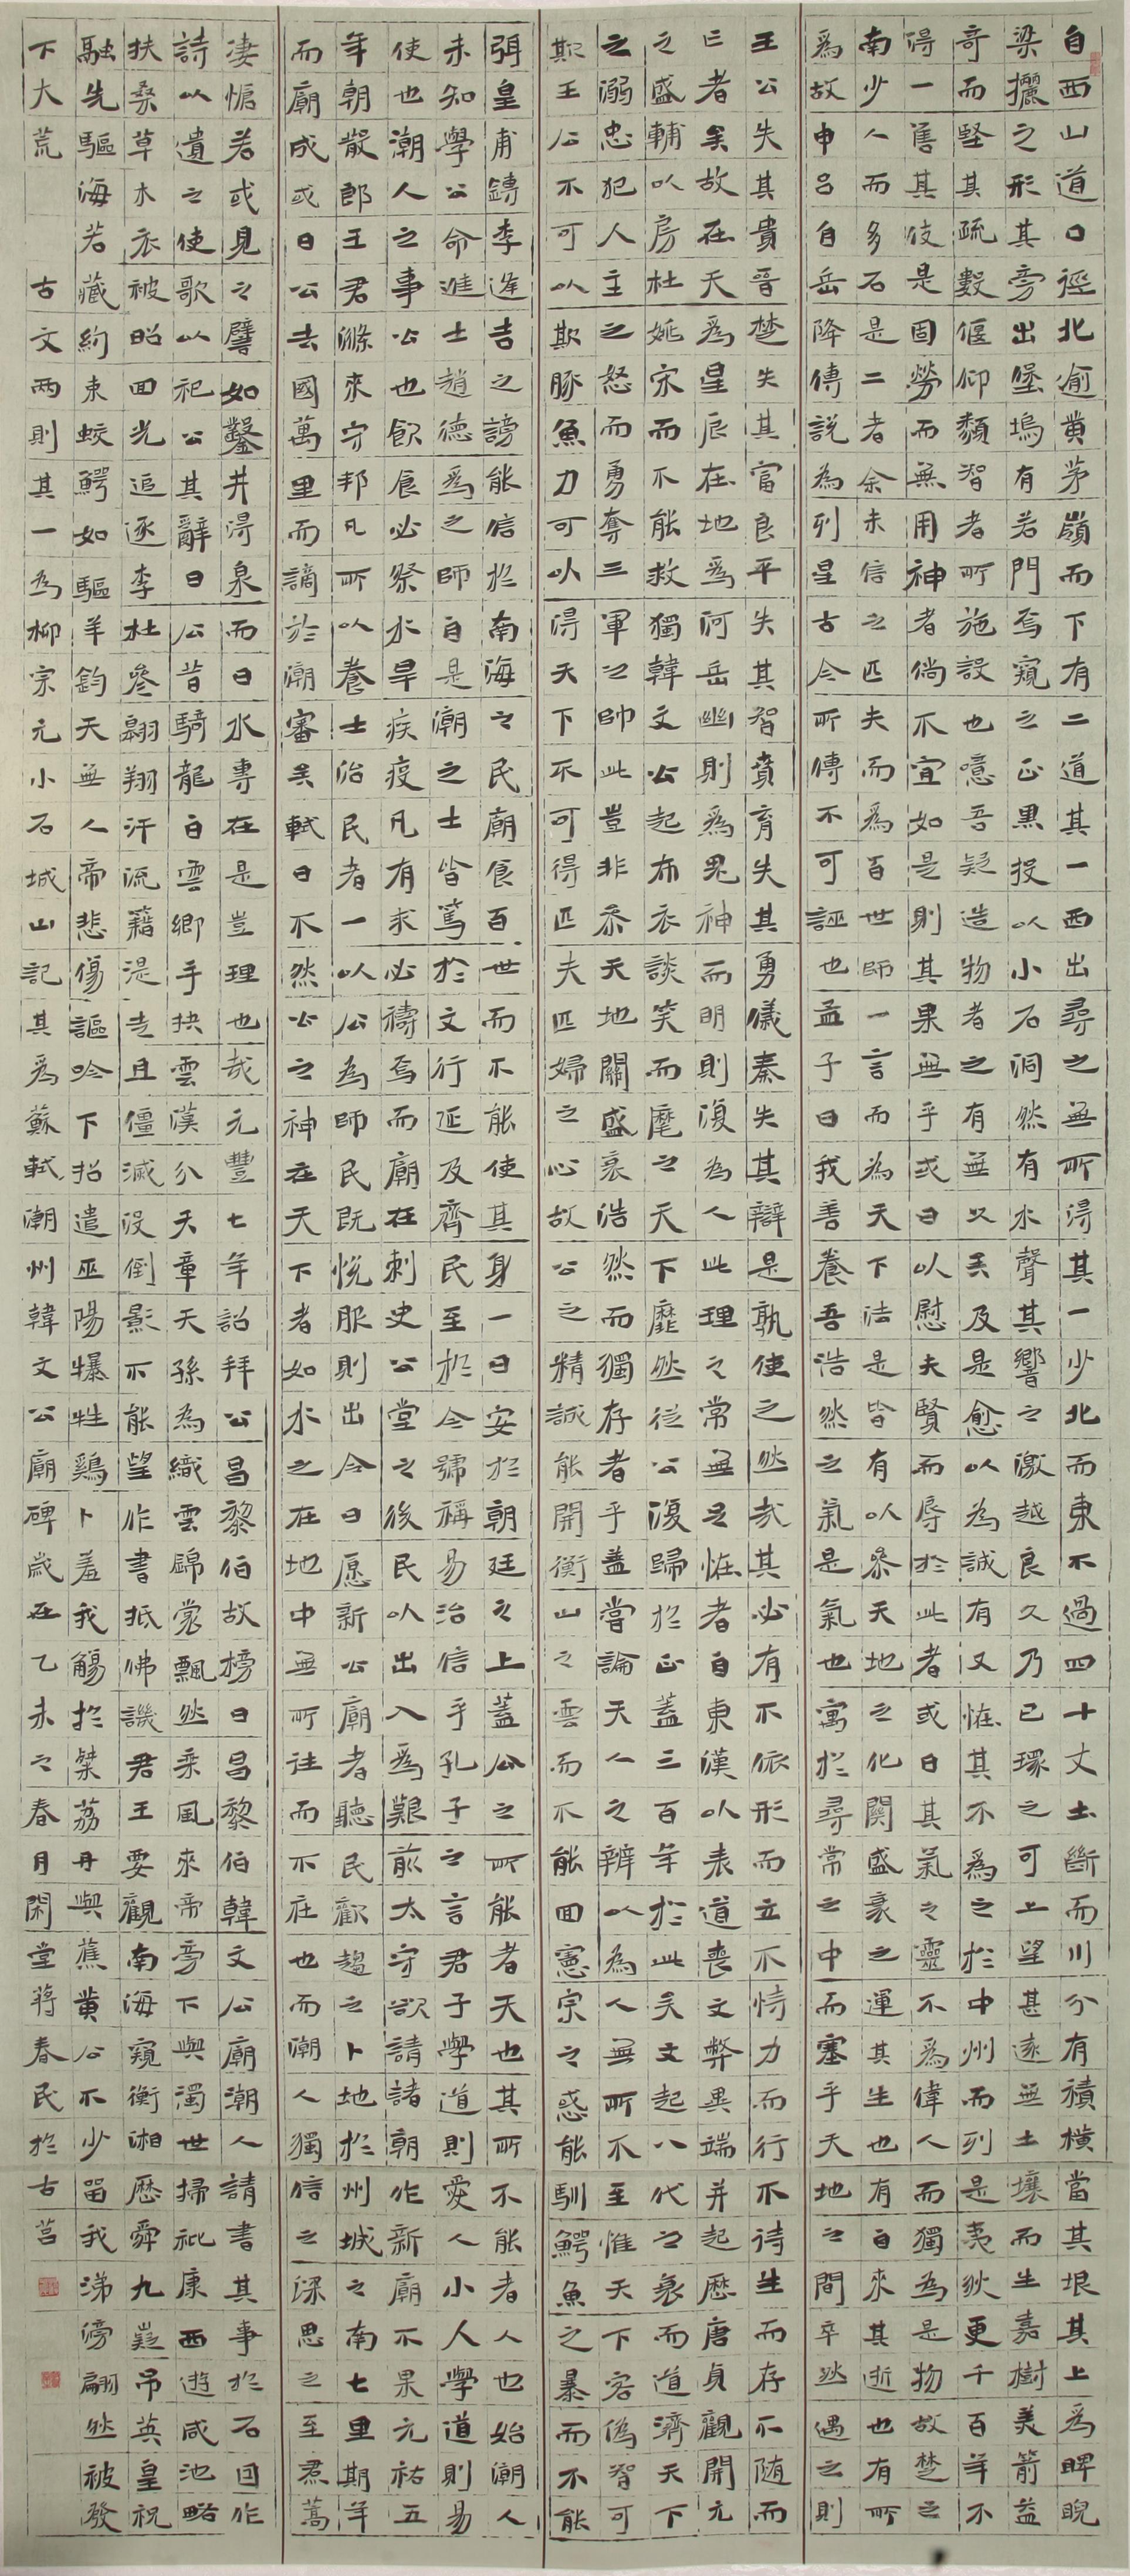 自西山道口徑北逾黄茅嶺而下有二道其一西出尋之無所得其一少北而東不過四十丈土斷而川分有積橫當其垠其上爲睥睨
梁欐之形其旁出堡塢有若門焉窺之正黑投以小石洞然有水聲其響之激越良久乃已環之可上望甚遠無土壤而生嘉樹美箭益
奇而堅其疏數偃仰類智者所施設也噫吾疑造物者之有無久矣及是愈以為誠有又怪其不爲之於中州而列是夷狄更千百年不
得一售其伎是固勞而無用神者倘不宜如是則其果無乎或曰以慰夫賢而辱於此者或曰其氣之靈不爲偉人而獨為是物故楚之
南少人而多石是二者余未信之匹夫而爲百世師一言而為天下法是皆有以參天地之化關盛衰之運其生也有自來其逝也有所
爲故申呂自岳降傅說為列星古今所傳不可誣也孟子曰我善養吾浩然之氣是氣也寓於尋常之中而塞乎天地之間卒然遇之則
王公失其貴晉楚失其富良平失其智賁育失其勇儀秦失其辯是孰使之然哉其必有不依形而立不恃力而行不待生而存不随而
亡者矣故在天爲星辰在地爲河岳幽則爲鬼神而明則復為人此理之常無足怪者自東漢以表道喪文弊異端并起歷唐貞觀開元
之盛輔以房杜姚宋而不能救獨韓文公起布衣談笑而麾之天下靡然從公復歸於正蓋三百年於此矣文起八代之衰而道濟天下
之溺忠犯人主之怒而勇奪三軍之帥此豈非參天地關盛衰浩然而獨存者乎蓋嘗論天人之辨以為人無所不至惟天下容偽智可
欺王公不可以欺豚魚力可以得天下不可得匹夫匹婦之心故公之精誠能開衡山之雲而不能回憲宗之惑能馴鱷魚之暴而不能
弭皇甫鎛李逢吉之謗能信於南海之民廟食百世而不能使其身一日安於朝廷之上蓋公之所能者天也其所不能者人也始潮人
未知學公命進士趙德爲之師自是潮之士皆篤於文行延及齊民至於今號稱易治信乎孔子之言君子學道則愛人小人學道則易
使也潮人之事公也飲食必祭水旱疾疫凡有求必禱焉而廟在刺史公堂之後民以出入爲艱前太守欲請諸朝作新廟不果元祐五
年朝散郎王君滌來守邦凡所以養士治民者一以公為師民既悅服則出令曰愿新公廟者聽民歡趨之卜地於州城之南七里期年
而廟成或曰公去國萬里而謫於潮審矣軾曰不然公之神在天下者如水之在地中無所往而不在也而潮人獨信之深思之至焄蒿
凄愴若或見之譬如鑿井得泉而曰水專在是豈理也哉元豐七年詔拜公昌黎伯故榜曰昌黎伯韓文公廟潮人請書其事於石因作
詩以遺之使歌以祀公其辭曰公昔騎龍白雲鄉手抉雲漢分天章天孫為織雲錦裳飄然乘風來帝旁下與濁世掃秕康西遊咸池略
扶桑草木衣被昭回光追逐李杜參翱翔汗流籍湜走且僵滅沒倒影不能望作書抵佛譏君王要觀南海窺衡湘歷舜九嶷吊英皇祝
融先驅海若藏約束蛟鱷如驅羊鈞天無人帝悲傷謳吟下招遣巫陽犦牲鷄卜羞我觴於粲荔丹與蕉黄公不少留我涕滂翩然被發
下大荒 古文两則其一為柳宗元小石城山記其爲蘇軾潮州韓文公廟碑歲在乙未之春月閑堂蔣春民於古莒